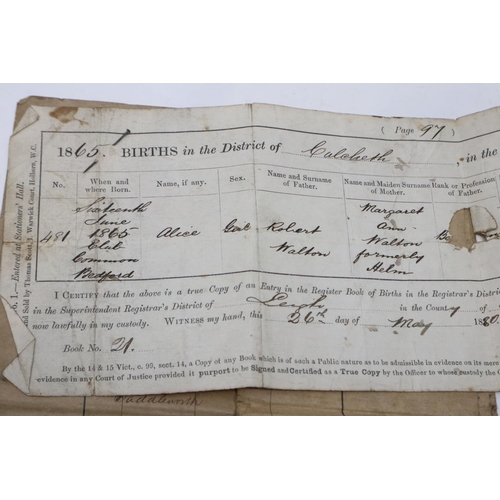 ( Page 97 )
1865. BIRTHS in the District of Culcheth , in the
No. When and where Born. Name, if any. Sex. Name and Surname of Father. Name and Maiden Surname of Mother. Rank or Profession of Father.
481 Sixteenth June 1865 Club Common Bedford Alice Girl Robert Walton Margaret Ann Walton formerly Helm
I CERTIFY that the above is a true Copy of an Entry in the Register Book of Births in the Registrar's District
in the Superintendent Registrar's District of Leigh in the County of
now lawfully in my custody. WITNESS my hand, this 26th day of May 188
Book No. 21.
By the 14 & 15 Vict., c. 99, sect. 14, a Copy of any Book which is of such a Public nature as to be admissible in evidence on its mere
evidence in any Court of Justice provided it purport to be Signed and Certified as a True Copy by the Officer to whose custody the
1.—Entered at Stationers' Hall.
and Sold by Thomas Scott, 1, Warwick Court, Holborn, W.C.